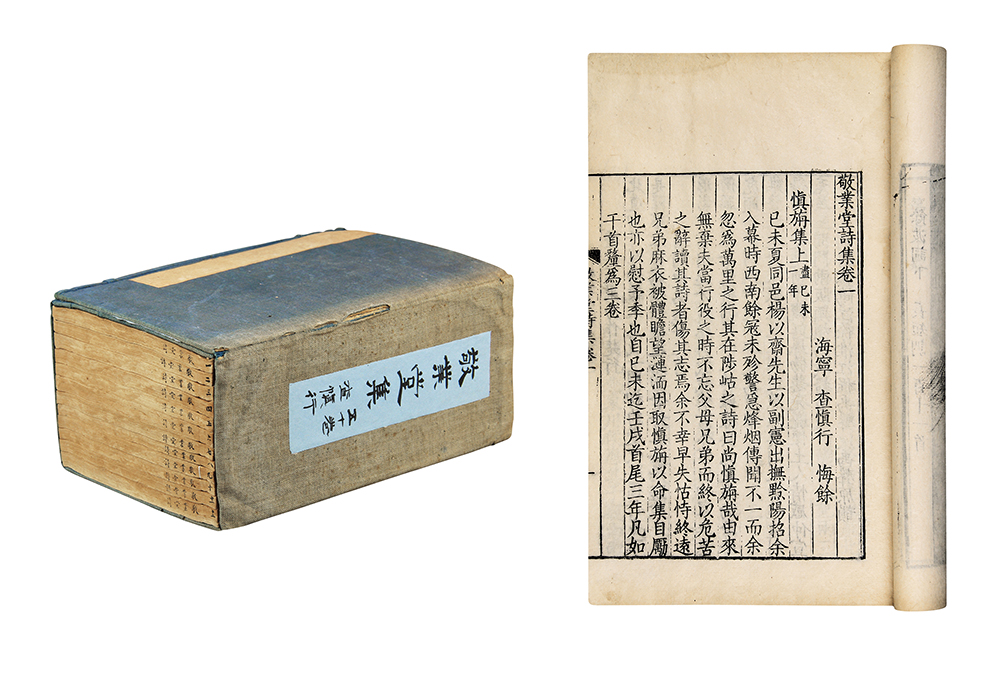 敬業堂集 五十卷
查慎行
敬業堂詩集卷一
海寧 查慎行 悔餘
慎旃集上 盡己未一年
己未夏同邑楊以齋先生以副憲出撫黔陽招余
入幕時西南餘冦未殄警急烽烟傳聞不一而余
忽爲萬里之行其在陟岵之詩曰尚慎旃哉由來
無棄夫當行役之時不忘父母兄弟而終以危苦
之辭讀其詩者傷其志焉余不幸早失怙恃終遠
兄弟麻衣被體瞻望漣洏因取慎旃以命集自勵
也亦以慰予季也自己未迄壬戌首尾三年凡如
干首釐爲三卷